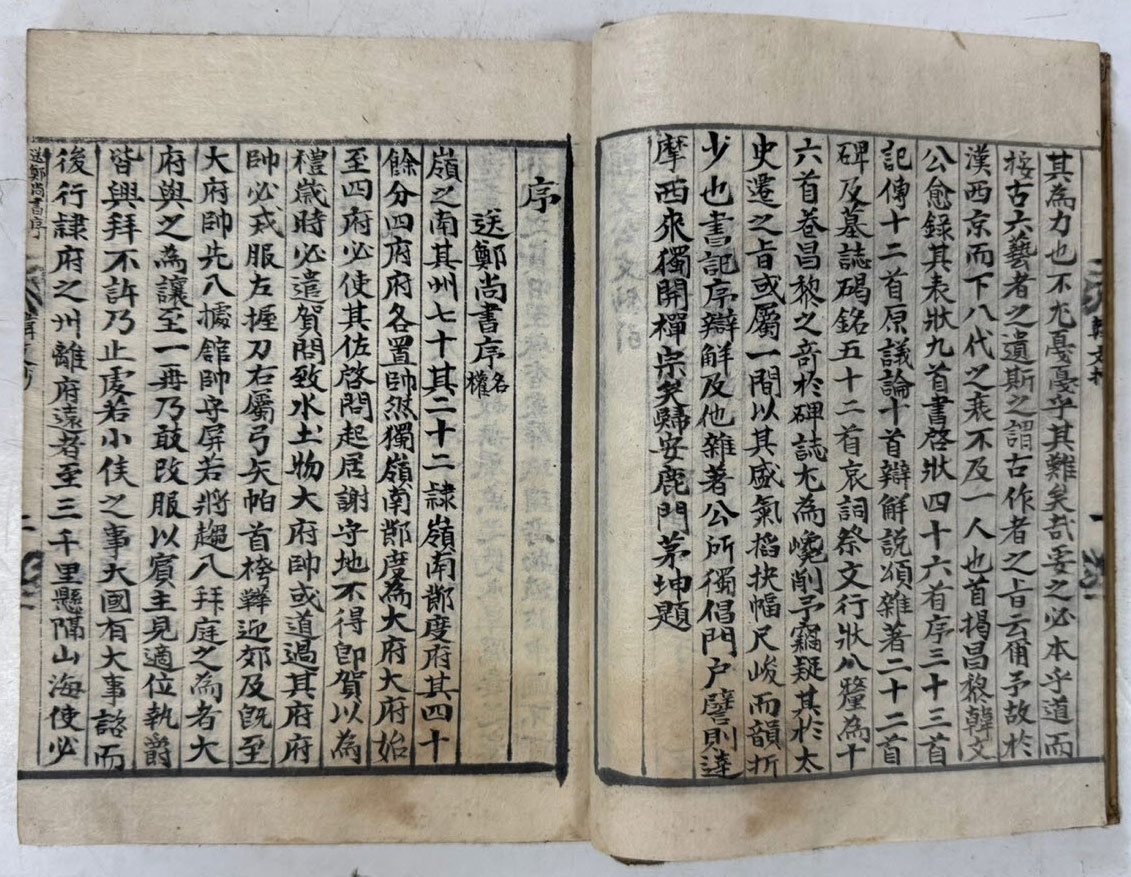 其為力也不尤憂憂乎其難矣哉要之必本乎道而
按古六藝者之遺斯之謂古作者之旨云爾予故於
漢西京而下八代之衰不及一人也首揭昌黎韓文
公愈錄其表狀九首書啓狀四十六首序三十三首
記傳十二首原議論十首辯解說頌雜著二十二首
碑及墓誌碣銘五十二首哀詞祭文行狀八釐為十
六首卷昌黎之奇於碑誌尤為巉削予竊疑其於太
史遷之旨或屬一間以其盛氣搯抉幅尺峻而韻折
少也書記序辯解及他雜著公所獨倡門戶譬則達
摩西來獨開禪宗矣歸安鹿門茅坤題
韓文抄
一
序
送鄭尚書序 名權
嶺之南其州七十其二十二隷嶺南節度府其四十
餘分四府府各置帥然獨嶺南節度為大府大府始
至四府必使其佐啓問起居謝守地不得卽賀以為
禮歲時必遣賀問致水土物大府帥或道過其府府
帥必戎服左握刀右屬弓矢帕首袴鞾迎郊及旣至
大府帥先入據館帥守屏若將趨入拜庭之為者大
府與之為讓至一再乃敢改服以賓主見適位執爵
皆興拜不許乃止虔若小侯之事大國有大事諮而
後行隷府之州離府遠者至三千里懸隔山海使必
送鄭尚書序